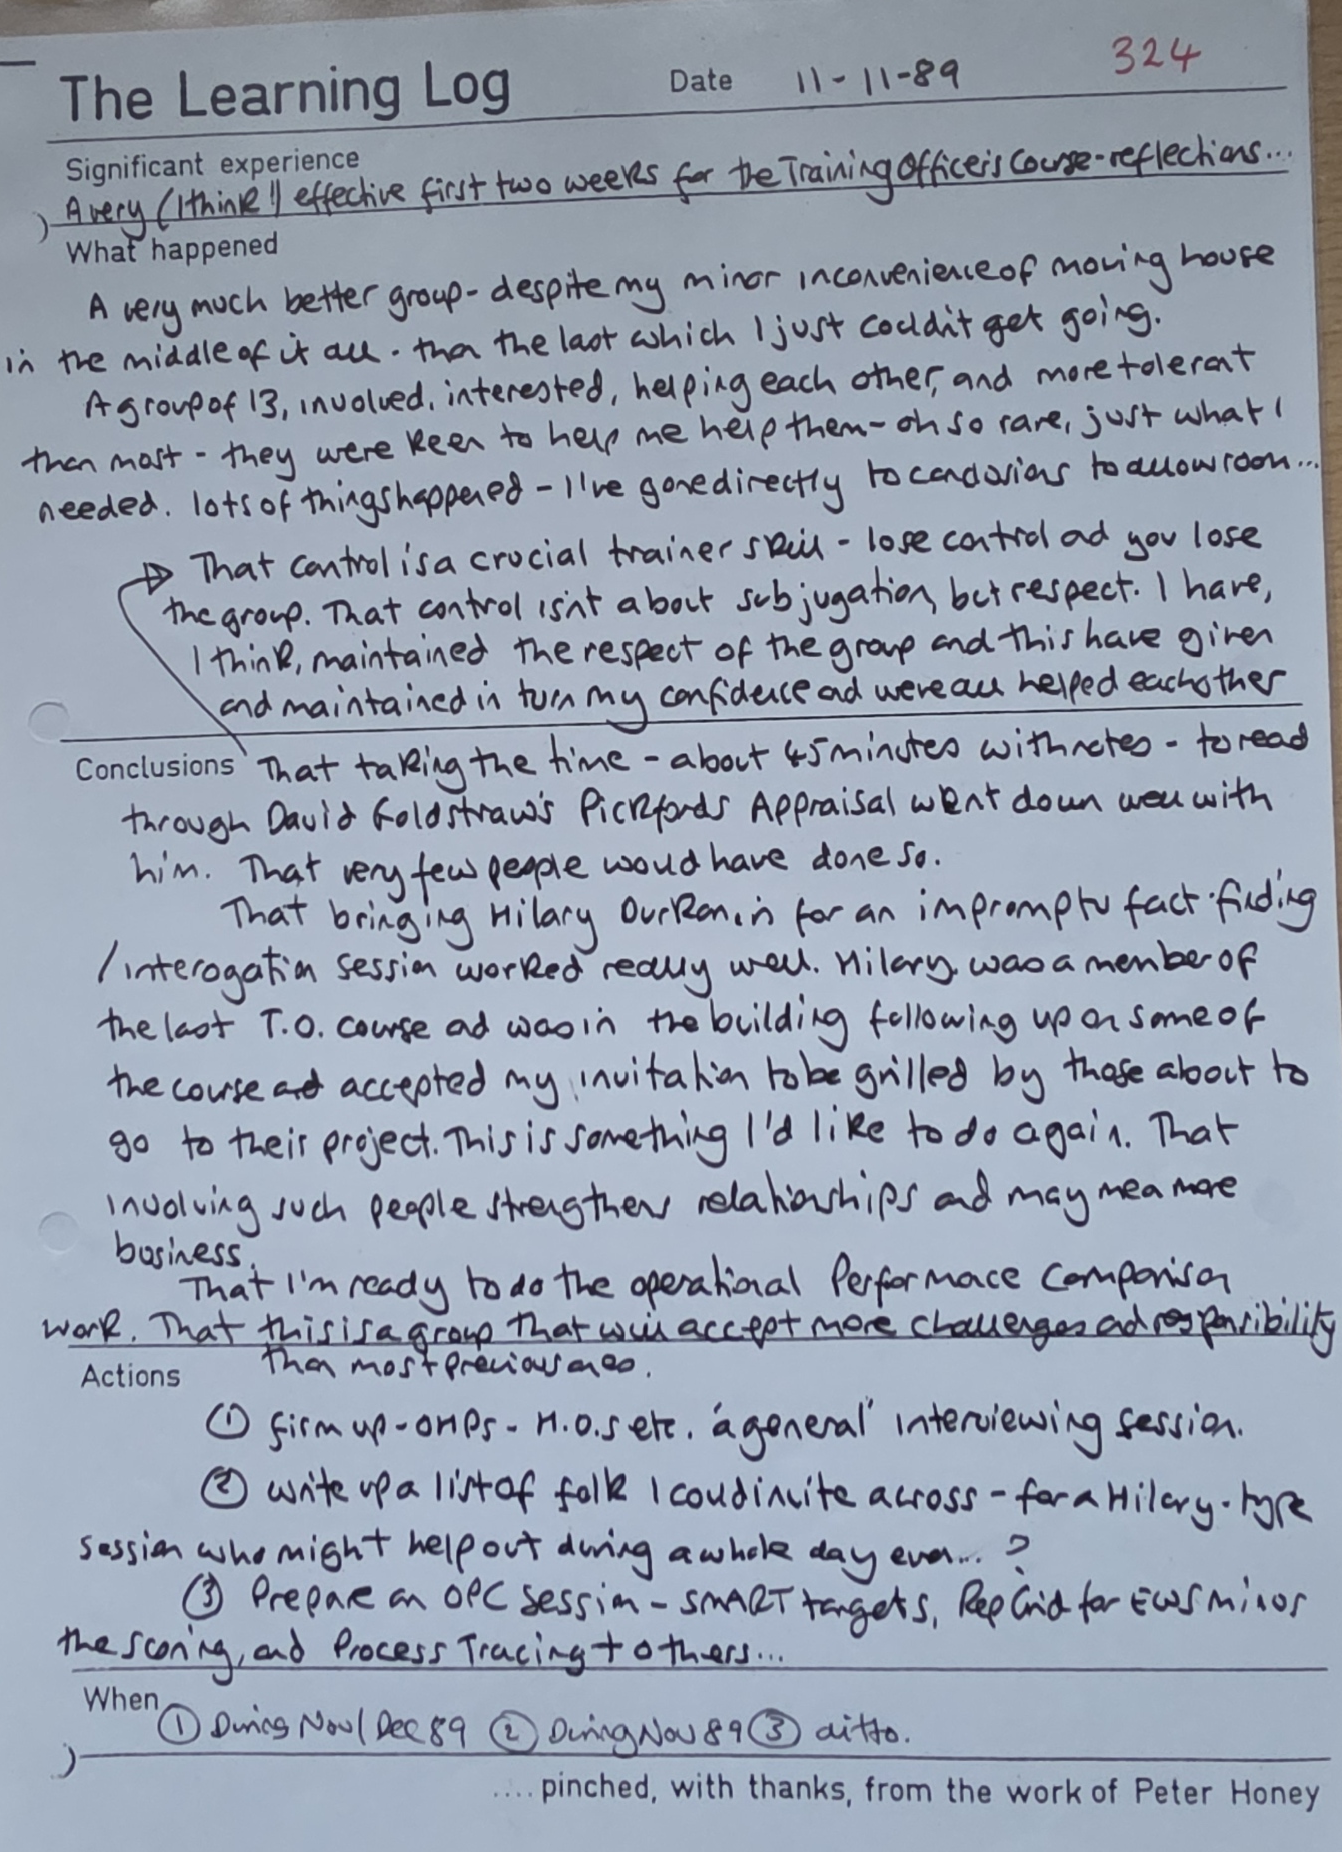 324
The Learning Log Date 11-11-89
Significant experience
A very (I think!) effective first two weeks for the Training Officer's Course - reflections...
What happened
A very much better group - despite my minor inconvenience of moving house
in the middle of it all - than the last which I just couldn't get going.
A group of 13, involved, interested, helping each other, and more tolerant
than most - they were keen to help me help them - oh so rare, just what I
needed. Lots of things happened - I've gone directly to conclusions to allow room...
That control is a crucial trainer skill - lose control and you lose
the group. That control isn't about subjugation, but respect. I have,
I think, maintained the respect of the group and this have given
and maintained in turn my confidence and were all helped each other
Conclusions That taking the time - about 45 minutes with notes - to read
through David Goldstraw's Pickfords Appraisal went down well with
him. That very few people would have done so.
That bringing Hilary in for an impromptu fact-finding
/interogation session worked really well. Hilary was a member of
the last T.O. course and was in the building following up on some of
the course and accepted my invitation to be grilled by those about to
go to their project. This is something I'd like to do again. That
involving such people strengthens relationships and may mean more
business.
That I'm ready to do the operational Performance Comparison
work. That this is a group that will accept more challenges and responsibility
than most previous ones.
Actions
① firm up - OHPs - H.O.s etc. 'a general' interviewing session.
② write up a list of folk I could invite across - for a Hilary-type
session who might help out during a whole day even...?
③ Prepare an OPC session - SMART targets, Rep Grid for EWS minus
the scoring, and Process Tracing + others...
When
① During Nov/Dec 89 ② During Nov 89 ③ ditto.
.... pinched, with thanks, from the work of Peter Honey